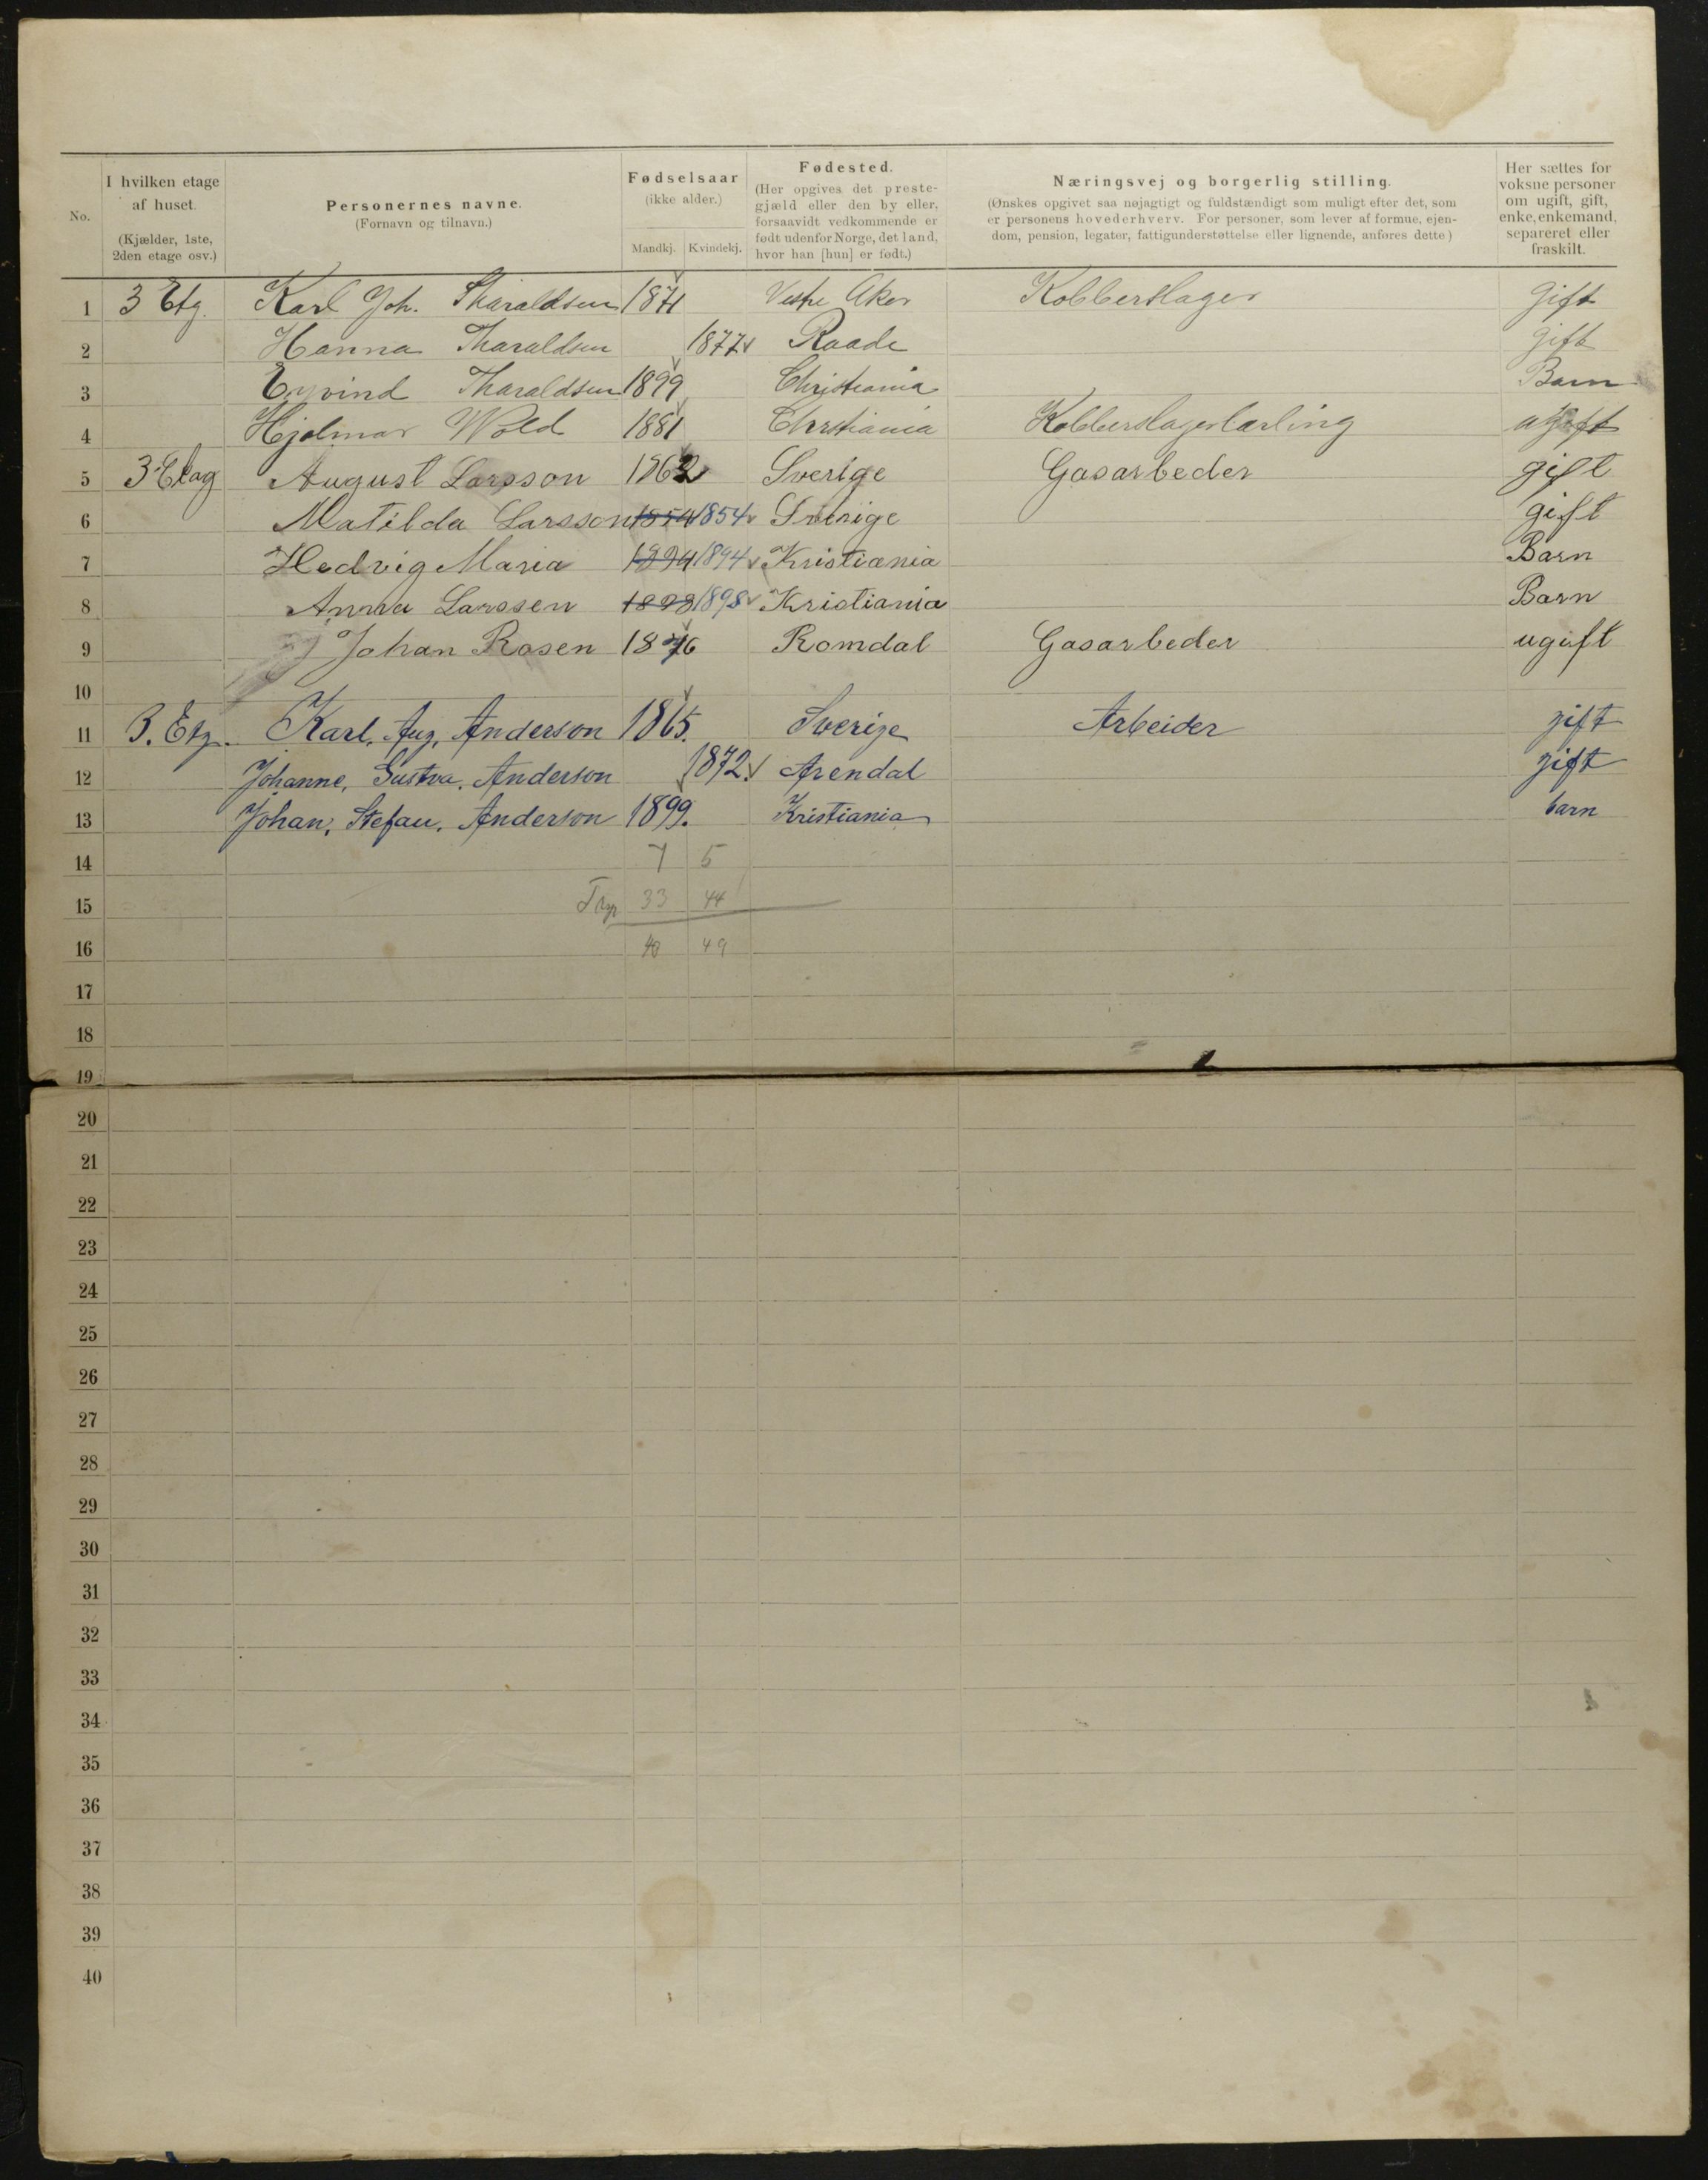 No. I hvilken etage af huset. (Kjælder, 1ste, 2den etage osv.) Personernes navne. (Fornavn og tilnavn.) Fødselsaar (ikke alder.) Mandkj. Kvindekj. Fødested. (Her opgives det prestegjæld eller den by eller, forsaavidt vedkommende er født udenfor Norge, det land, hvor han [hun] er født.) Næringsvej og borgerlig stilling. (Ønskes opgivet saa nøjagtigt og fuldstændigt som muligt efter det, som er personens hovederhverv. For personer, som lever af formue, ejendom, pension, legater, fattigunderstøttelse eller lignende, anføres dette) Her sættes for voksne personer om ugift, gift, enke, enkemand, separeret eller fraskilt.
1 3 Etg. Karl Joh. Tharaldsen 1871 Vestre Aker Kobberslager Gift
2 Hanna Tharaldsen 1877 Raade gift
3 Eyvind Tharaldsen 1899 Christiania Barn
4 Hjalmar Wold 1881 Christiania Kobberslagerlærling ugift
5 3 Etag August Larsson 1862 Sverige Gasarbeder gift
6 Matilda Larsson 1854 1854 Sverige gift
7 Hedvig Maria 1894 1894 Kristiania Barn
8 Anna Larssen 1898 1898 Kristiania Barn
9 Johan Rosen 1876 Romdal Gasarbeder ugift
10
11 3. Etg. Karl. Aug. Anderson 1865. Sverige Arbeider gift
12 Johanne, Gustva. Anderson 1872. Arendal gift
13 Johan, Stefan. Anderson 1899. Kristiania barn
14 7 5
15 33 44
16 40 49
17
18
19
20
21
22
23
24
25
26
27
28
29
30
31
32
33
34
35
36
37
38
39
40